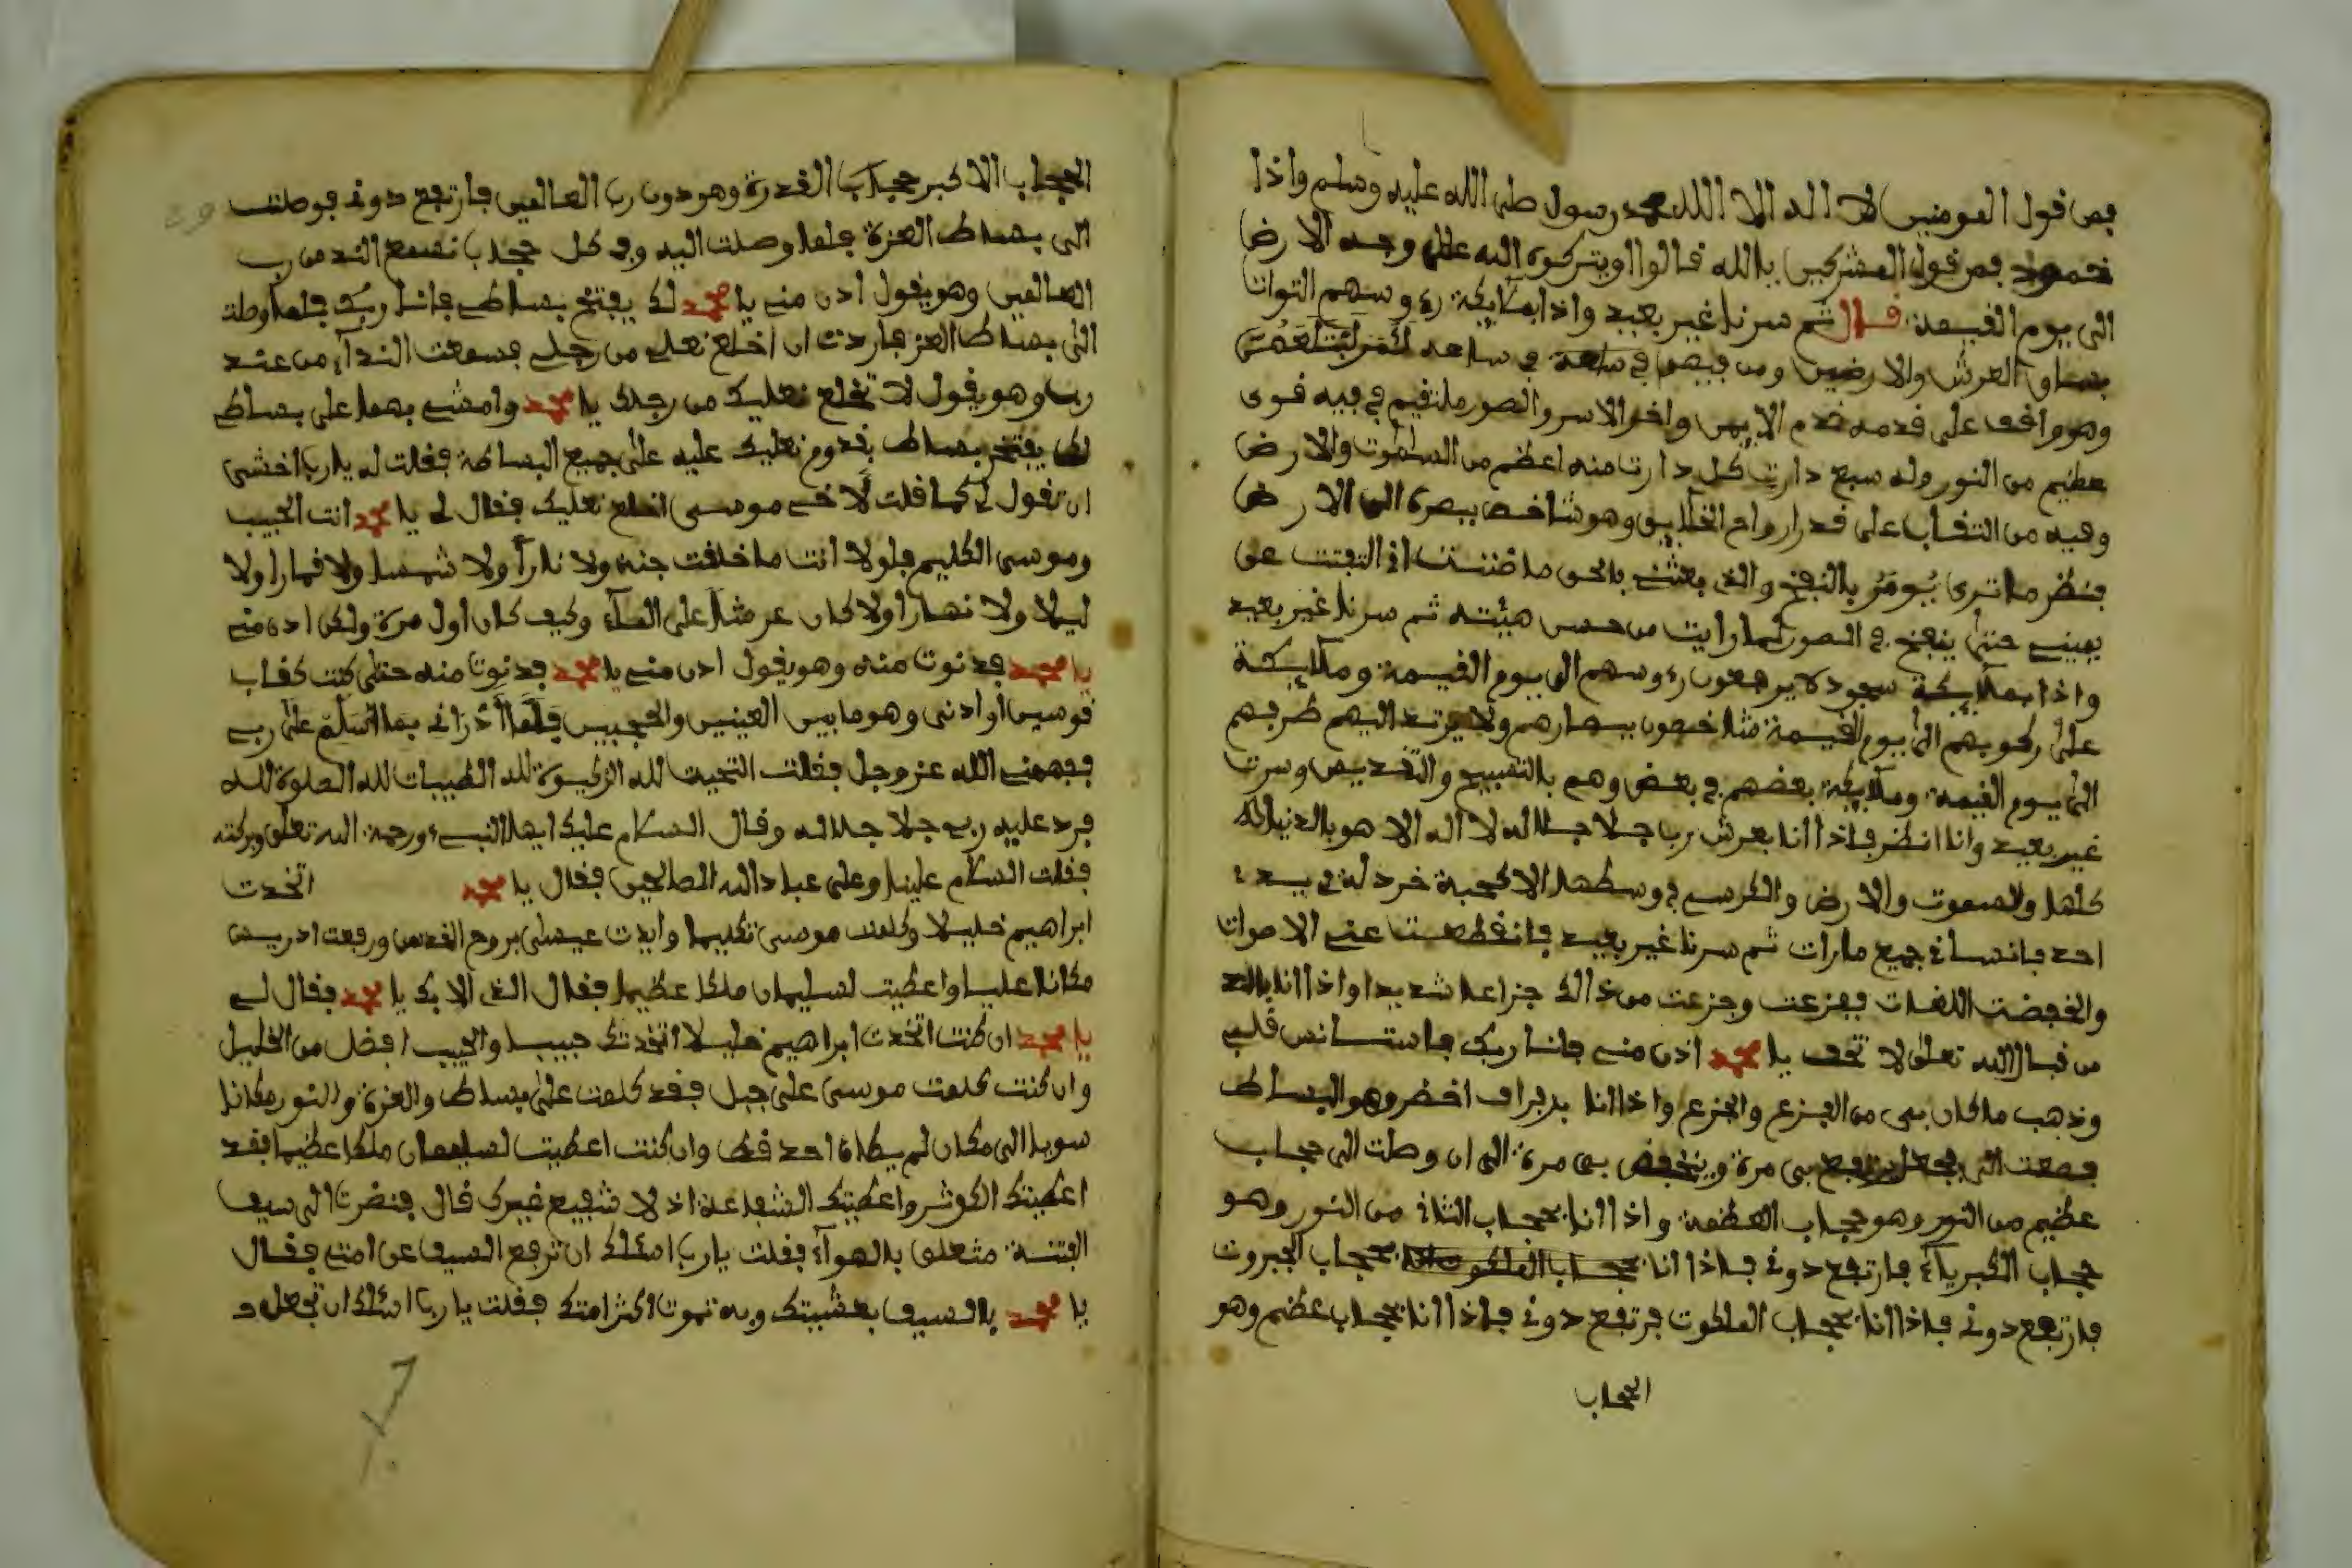 فمن قول المومنين لا اله الا الله محمد رسول صلى الله عليه وسلم واذا
خمود فمن قول المشركين بالله قالوا ويتركوه اليه على وجه الارض
الى يوم القيمة قال ثم سرنا غير بعيد واذا بملايكة رءوسهم
بساق العرش والارضين ومن فيهم في ساعة في ساعه
وهو واقف على قدمه قدم الايمن واخر الايسر والصور ملتقيم في فيه قوى
عظيم من النور وله سبع دارت كل دارت منه اعظم من السموت والارض
وفيه من التقاب على قدر ارواح الخلايق وهو شاخص ببصره الى الارض
فينظر ما ترى يومر بالنفخ والذي بعثني بالحق ما ضننت اذ التفتت عن
يميني حتى ينفخ في الصور لما رايت من حسن هيئته ثم سرنا غير بعيد
واذا بملايكة سجود لا يرفعون رءوسهم الى يوم القيمة وملايكة
على ركوبهم الى يوم القيمة شاخصون ببصارهم ولا يرتد اليهم طرفهم
الى يوم القيمة وملايكة بعضهم في بعض وهم بالتسبيح والتقديس وسرت
غير بعيد وانا انظر فاذا انا بعرش ربي جلا جلاله لا اله الا هو بالدنيا له
كلها والسموت والارض والكرسي في وسطها الا كحبة خردلة في يد
احد فانساني جميع ما رات ثم سرنا غير بعيد فانقطعت عني الاصوات
والخفضت اللغات ففزعت وجزعت من ذالك جزاعا شديدا واذا انا بالند
من قبال الله تعلى لا تخف يا محمد ادن مني فانا ربك فاستانس قلبي
وذهب ما كان بي من الفزع والجزع واذا انا برفراف اخضر وهو البساط
فصعت الى فجعل يرفع بي مرة وينخفض بي مرة الى ان وصلت الى حجاب
عظيم من النور وهو حجاب العظمة واذا انا بحجاب الثاني من النور وهو
حجاب الكبرياء فارتفع دوني فاذا انا بحجاب الملكوت بحجاب الجبروت
فارتفع دوني فاذا انا بحجاب الملكوت فرتفع دوني فاذا انا بحجاب عظيم وهو
الحجاب
الحجاب الاكبر حجاب القدرة وهو دون رب العالمين فارتفع دوني فوصلت
الى بساط العزة فلما وصلت اليه وفي كل حجاب نسمع الند من رب
العالمين وهو يقول ادن مني يا محمد لك يفتخ بساطي فانا ربك فلما وصلت
الى بساط العز فاردت ان اخلع نعلي من رجلي فسمعت النداء من عند
ربي وهو يقول لا تخلع نعليك من رجلك يا محمد وامشي بهما على بساطي
لكي يفتخر بساطي بقدوم نعليك عليه على جميع البساطة فقلت له يا رب اخشى
ان تقول لي كما قلت لاخي موسى اخلع نعليك فقال لي يا محمد انت الحبيب
وموسى الكليم فلولا انت ما خلقت جنة ولا نارا ولا شمسا ولا قمارا ولا
ليلا ولا نهارا ولا كان عرشا على الماء وكيف كان اول مرة ولكن ادن مني
يا محمد فدنوت منه وهو يقول ادن مني يا محمد فدنوت منه حتى كنت كقاب
قوسين او ادنى وهو ما بين العينين والحجبين فلما ادراني بما اسلم على ربي
ففهمني الله عز وجل فقلت التحيت لله الزكيوة لله الطيبات لله الصلوة لله
فرد عليه ربي جلا جلاله وقال السلام عليك ايها النبيء ورحمة الله تعلى وبركته
فقلت السلام علينا وعلى عباد الله الصالحين فقال يا محمد اتخدت
ابراهيم خليلا وكلمت موسى تكليما وايدت عيسى بروح القدس ورفعت ادريس
مكانا عليا واعطيت لسليمان ملكا عظيما فقال الذي الا بك يا محمد فقال لي
يا محمد ان كنت اتخدت ابراهيم خليلا اتخدتك حبيبا والحبيب افضل من الخليل
وان كنت كلمت موسى على جبل فقد كلمت على بساط والعزة والنور مكانا
سويا الى مكان لم يطاه احد قط وان كنت اعطيت لسليمان ملكا عظيما فقد
اعطيتك الكوثر واعطيتك الشفاعة اذ لا شفيع غيرك قال فنضرت الى سيف
الفتنة متعلق بالهواء فقلت يا رب اسئلك ان ترفع السيف عن امتي فقال
يا محمد بالسيف بعثيتك وبه تموت اكثر امتك فقلت يا رب اسئلك ان تجعل